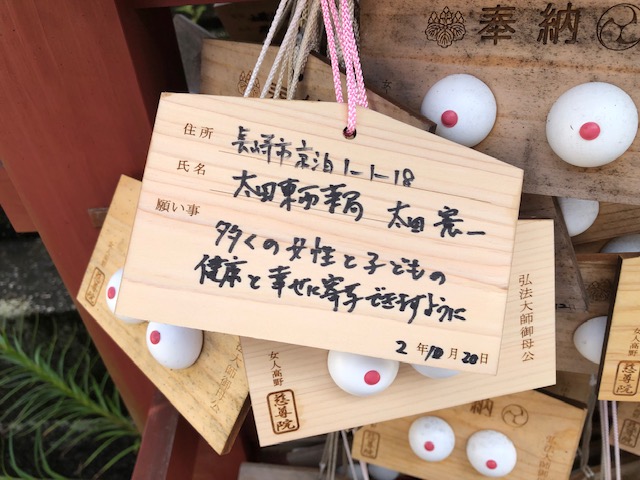 奉納
住所 長崎市京泊1-1-18
氏名 太田東西薬局 太田 宏一
願い事
多くの女性と子どもの
健康と幸せに寄与できますように
2年10月20日
弘法大師御母公
女人高野
慈尊院
弘法大師御母公
慈尊院
納
慈尊院